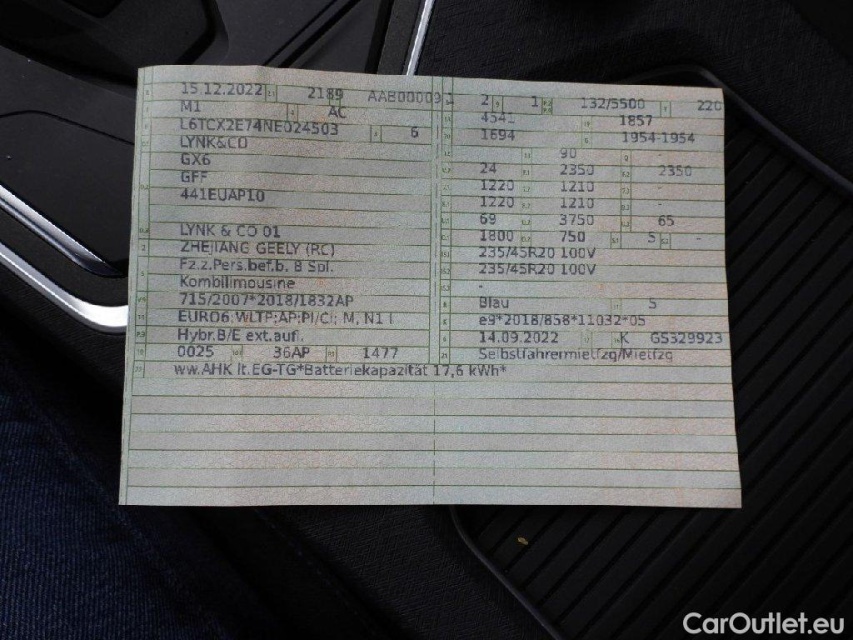 15.12.2022 2189 AAB00009
M1 AC
L6TCX2E74NE024503 6
LYNK&CO
GX6
GFF
441EUAP10
LYNK & CO 01
ZHEJIANG GEELY (RC)
Fz.z.Pers.bef.b. 8 Spl.
Kombilimousine
715/2007*2018/1832AP
EURO6;WLTP;AP;PI/CI; M, N1 I
Hybr.B/E ext.aufl.
0025 36AP 1477
ww.AHK lt.EG-TG*Batteriekapazität 17,6 kWh*
2 1 132/5500 220
4541 1857
1694 1954-1954
90 -
24 2350 2350
1220 1210 -
1220 1210 -
69 3750 65
1800 750 5 -
235/45R20 100V
235/45R20 100V
-
Blau 5
e9*2018/858*11032*05
14.09.2022 K GS329923
Selbstfahrermietfzg/Mietfzg
CarOutlet.eu